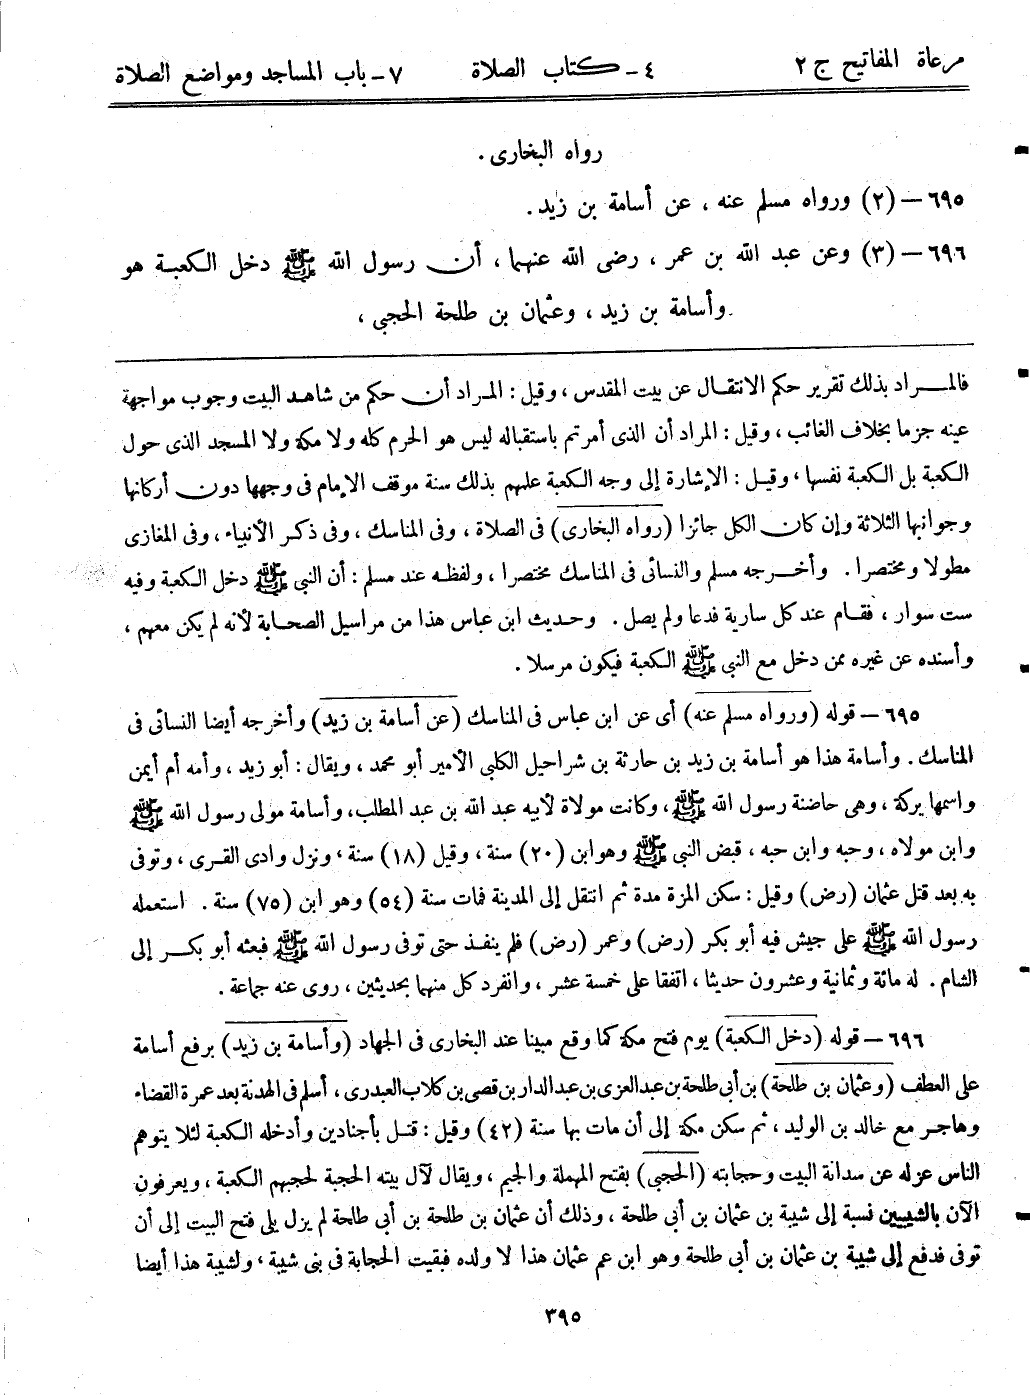 مرعاة المفاتيح ج ٢ ٤ - كتاب الصلاة ٧ - باب المساجد ومواضع الصلاة
رواه البخارى .
٦٩٥ - (٢) ورواه مسلم عنه ، عن أسامة بن زيد .
٦٩٦ - (٣) وعن عبد الله بن عمر ، رضى الله عنهما ، أن رسول الله ﷺ دخل الكعبة هو
وأسامة بن زيد ، وعثمان بن طلحة الحجبى ،
فالمراد بذلك تقرير حكم الانتقال عن بيت المقدس ، وقيل : المراد أن حكم من شاهد البيت وجوب مواجهة
عينه جزما بخلاف الغائب ، وقيل : المراد أن الذى أمرتم باستقباله ليس هو الحرم كله ولا مكة ولا المسجد الذى حول
الكعبة بل الكعبة نفسها ، وقيل : الإشارة إلى وجه الكعبة علمهم بذلك سنة موقف الإمام فى وجهها دون أركانها
وجوانبها الثلاثة وإن كان الكل جائزا (رواه البخارى) فى الصلاة ، وفى المناسك ، وفى ذكر الأنبياء ، وفى المغازى
مطولا ومختصرا . وأخرجه مسلم والنسائى فى المناسك مختصرا ، ولفظه عند مسلم : أن النبى ﷺ دخل الكعبة وفيه
ست سوار ، فقام عند كل سارية فدعا ولم يصل . وحديث ابن عباس هذا من مراسيل الصحابة لأنه لم يكن معهم ،
وأسنده عن غيره ممن دخل مع النبى ﷺ الكعبة فيكون مرسلا .
٦٩٥ - قوله (ورواه مسلم عنه) أى عن ابن عباس فى المناسك (عن أسامة بن زيد) وأخرجه أيضا النسائى فى
المناسك . وأسامة هذا هو أسامة بن زيد بن حارثة بن شراحيل الكلبى الأمير أبو محمد ، ويقال : أبو زيد ، وأمه أم أيمن
واسمها بركة ، وهى حاضنة رسول الله ﷺ ، وكانت مولاة لأبيه عبد الله بن عبد المطلب، وأسامة مولى رسول الله ﷺ
وابن مولاه ، وحبه وابن حبه ، قبض النبى ﷺ وهو ابن (٢٠) سنة ، وقيل (١٨) سنة ، ونزل وادى القرى ، وتوفى
به بعد قتل عثمان (رض) وقيل : سكن المزة مدة ثم انتقل إلى المدينة فمات سنة (٥٤) وهو ابن (٧٥) سنة . استعمله
رسول الله ﷺ على جيش فيه أبو بكر (رض) وعمر (رض) فلم ينفذ حتى توفى رسول الله ﷺ فبعثه أبو بكر إلى
الشام . له مائة وثمانية وعشرون حديثا ، اتفقا على خمسة عشر ، وانفرد كل منهما بحديثين ، روى عنه جماعة .
٦٩٦ - قوله (دخل الكعبة) يوم فتح مكة كما وقع مبينا عند البخارى فى الجهاد (وأسامة بن زيد) برفع أسامة
على العطف (وعثمان بن طلحة) بن أبى طلحة بن عبد العزى بن عبد الدار بن قصى بن كلاب العبدرى ، أسلم فى الهدنة بعد عمرة القضاء
وهاجر مع خالد بن الوليد ، ثم سكن مكة إلى أن مات بها سنة (٤٢) وقيل : قتل بأجنادين وأدخله الكعبة لئلا يتوهم
الناس عزله عن سدانة البيت وحجابته (الحجبى) بفتح المهملة والجيم ، ويقال لآل بيته الحجبة لحجبهم الكعبة ، ويعرفون
الآن بالشيبيين نسبة إلى شيبة بن عثمان بن أبى طلحة ، وذلك أن عثمان بن طلحة بن أبى طلحة لم يزل يلى فتح البيت إلى أن
توفى فدفع إلى شيبة بن عثمان بن أبى طلحة وهو ابن عم عثمان هذا لا ولده فبقيت الحجابة فى بنى شيبة ، ولشيبة هذا أيضا
٣٩٥